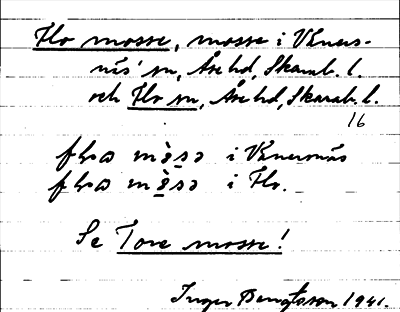 Flo mosse, mosse i Väners-
näs' sn, Åse hd, Skarab. l.
och Flo sn, Åse hd, Skarab. l.
16
i Vänersnäs
i Flo.
Se Tore mosse!
Inger Bengtsson 1941.